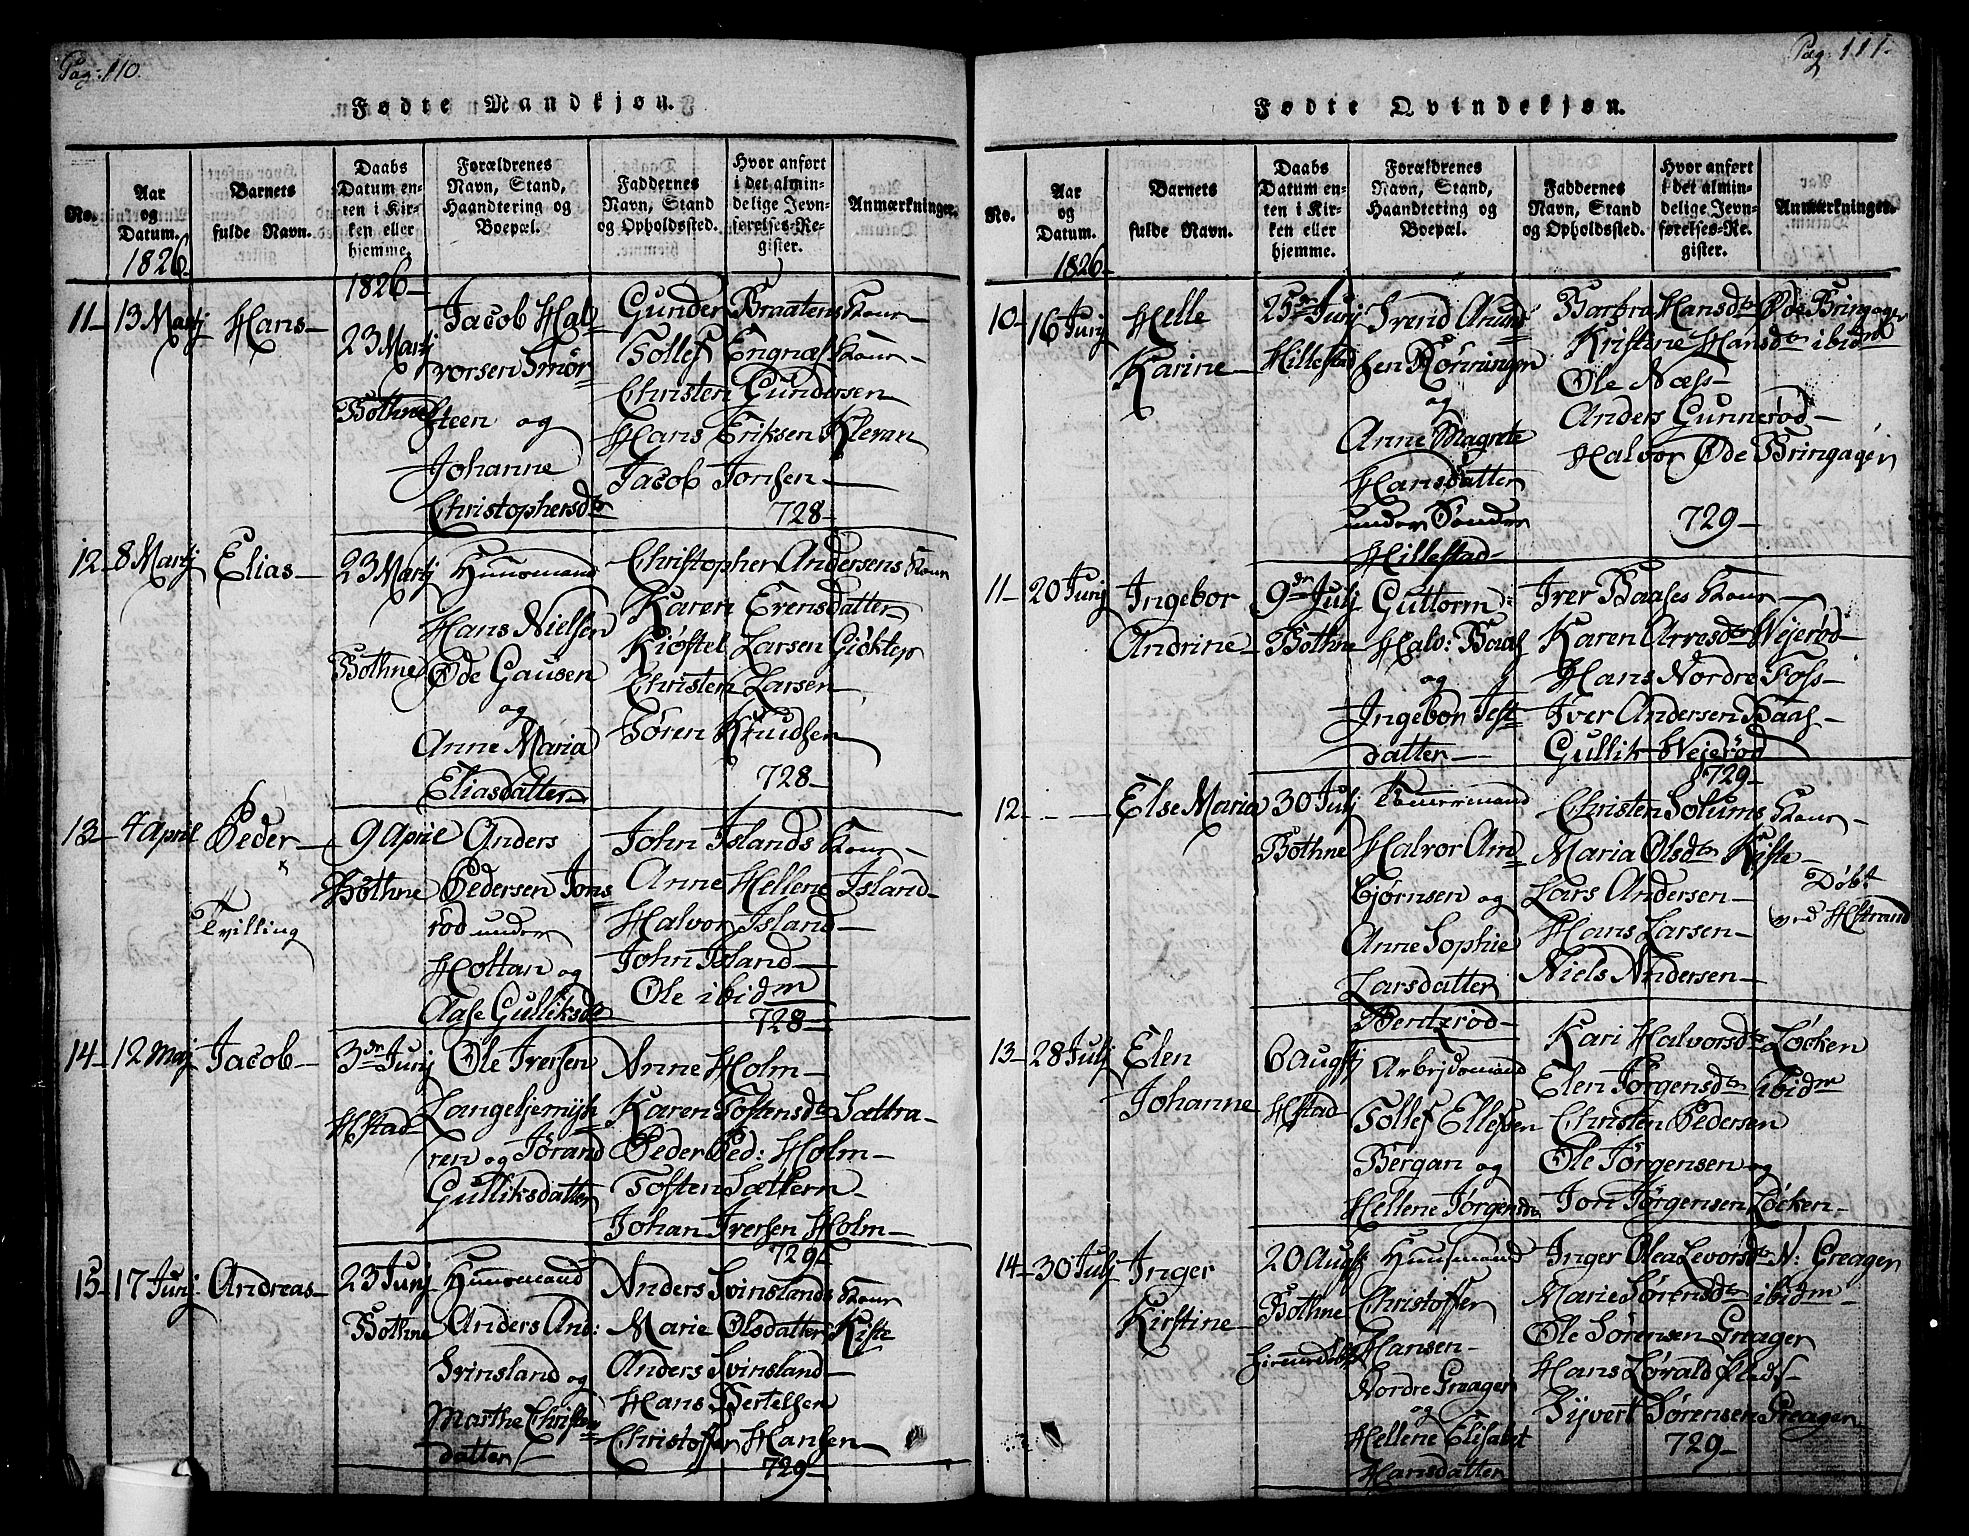 Pag: 110.
Fødte Mandkjøn.
No.
Aar og Datum.
1826
Barnets fulde Navn.
Daabs Datum enten i Kirken eller hjemme.
1826
Forældrenes Navn, Stand, Haandtering og Boepæl.
Faddernes Navn, Stand og Opholdssted.
Hvor anført i det almindelige Jevnførelses-Register.
Anmærkninger.
11 13 Martj Hans
23 Martj
Bothne
Jacob Hal
vorsen Smør
steen og
Johanne
Christophersdr
Gunder Braatens Kone
Tollef Engnæs Kone
Christen Gundersen
Hans Eriksen Klevan
Jacob Jonsen
728
12 8 Martj Elias
23 Martj
Bothne
Huusmand
Hans Nielsen
Øde Gausen
og
Anne Maria
Eliasdatter
Christopher Andersens Kone
Karen Evensdatter
Kiøstel Larsen Giøktep
Christen Larsen
Søren Knudsen
728
13 4 April Peder
x
Tvilling
9 April
Bothne
Anders
Pedersen Jons
rød under
Holtan og
Aase Gulliksdr
John Islands Kone
Anne Hellene Island
Halvor Island
John Island
Ole ibidm
728
14 12 Maj Jacob
3dr Junj
Hstad
Ole Iversen
Langebjemijh
ren og Jørand
Gulliksdatter
Anne Holm
Karen Tostensdr Sættra
Peder Ped: Holm
Tosten Sættern
Johan Iversen Holm
729
15 17 Junj Andreas
23 Junj
Bothne
Huusmand
Anders And:
Svinsland og
Marthe Christen
datter
Anders Svinslands Kone
Marie Olsdatter Kiste
Anders Svinsland
Hans Bertelsen
Christoffer Hansen
729
Pag: 111.
Fødte Qvindekjøn.
No.
Aar og Datum.
1826
Barnets fulde Navn.
Daabs Datum enten i Kirken eller hjemme.
Forældrenes Navn, Stand, Haandtering og Boepæl.
Faddernes Navn, Stand og Opholdssted.
Hvor anført i det almindelige Jevnførelses-Register.
Anmærkninger.
10 16 Junj Helle
Karine
25dr Junj
Hillestad
Svend Amund
sen Rønningen
og
Anne Magrete
Hansdatter
under Sønder
Hillestad
Barbra Hansdr Øde Bringager
Kristine Hansdr ibidm
Ole Næss
Anders Gunnerød
Halvor Øde Bringager
729
11 20 Junj Ingebor
Andrine
9dr Julj
Bothne
Guttorm
Halv: Baas
og
Ingebor Jest
datter
Iver Baases Kone
Karen Arvesdr Vejerød
Hans Nordre Foss
Iver Andersen Baas
Gullik Vejerød
729
12 Else Maria
30 Julj
Bothne
Tømmermand
Halvor Am
bjørnsen og
Anne Sophie
Larsdatter
Berdterød
Christen Solums Kone
Maria Olsdr Kiste
Lars Andersen
Hans Larsen
Niels Andersen
Døbt
ved Hstrand
13 28 Julj Elen
Johanne
6 Augstj
Hstad
Arbejdsmand
Tollef Ellefsen
Bergan og
Hellene Jørgensdr
Kari Halvorsdr Løcken
Elen Jørgensdr ibidm
Christen Pedersen
Ole Jørgensen og
Jon Jørgensen Løcken
14 30 Julj Inger
Kirstine
20 Augst
Bothne
Huusmand
Christoffer
Hansen
Nordre Greager
og
Hellene Elisabt
Hansdatter
Inger Olea Levorsdr N: Greager
Marie Sørensdr ibidm
Ole Sørensen Greager
Hans Løvald Plads
Sijvert Sørensen Greager
729